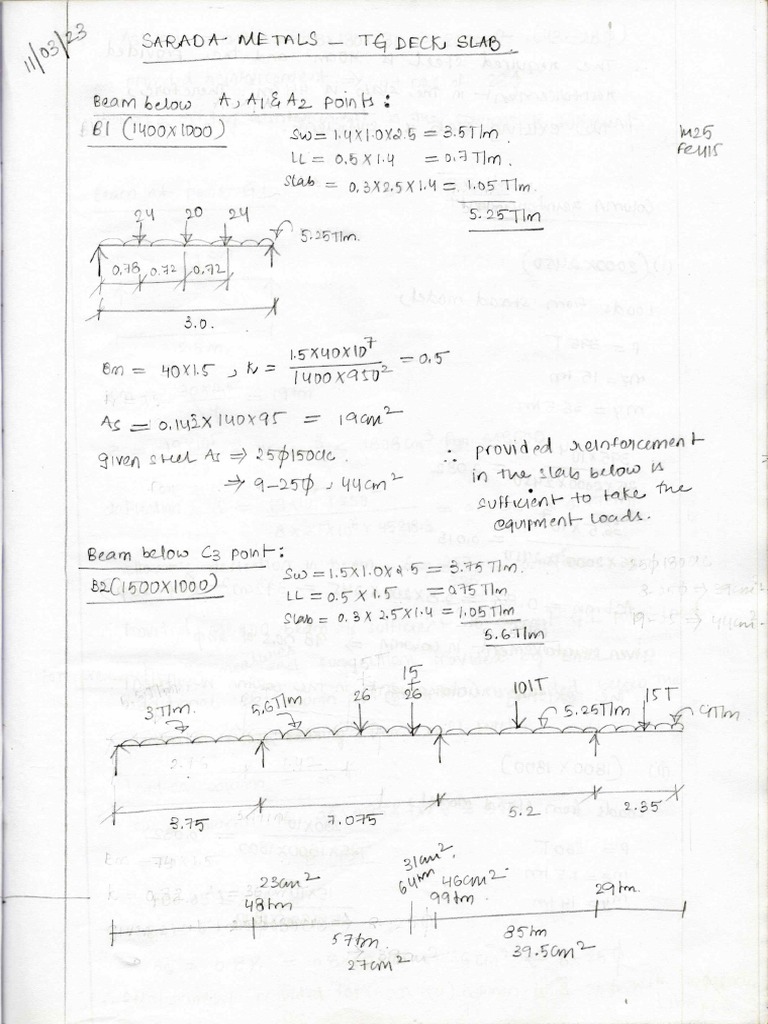 11/03/23
SARADA METALS - TG DECK SLAB.
Beam below A, A1 & A2 points:
B1 (1400X1000)
SW = 1.4X1.0X2.5 = 3.5T/m.
M25
Fe415
LL = 0.5X1.4 = 0.7T/m.
Slab = 0.3X2.5X1.4 = 1.05T/m.
5.25T/m
24 20 24
5.25T/m.
0.78 0.72 0.72
3.0.
Bm = 40X1.5, K = 1.5X40X10^7 / 1400X950^2 = 0.5
As = 0.142X140X95 = 19cm^2
given steel As ⇒ 25φ150c/c.
→ 9-25φ, 44cm^2
∴ provided reinforcement
in the slab below is
sufficient to take the
equipment loads.
Beam below C3 point:
B2(1500X1000)
SW = 1.5X1.0X2.5 = 3.75T/m.
LL = 0.5X1.5 = 0.75T/m
Slab = 0.3X2.5X1.4 = 1.05T/m
5.6T/m
3T/m. 5.6T/m 26 15 26 101T 5.25T/m 15T 4T/m
3.75 7.075 5.2 2.35
23cm^2 31cm^2 46cm^2 29tm.
48tm 64tm 99tm
57tm. 85tm
27cm^2 39.5cm^2